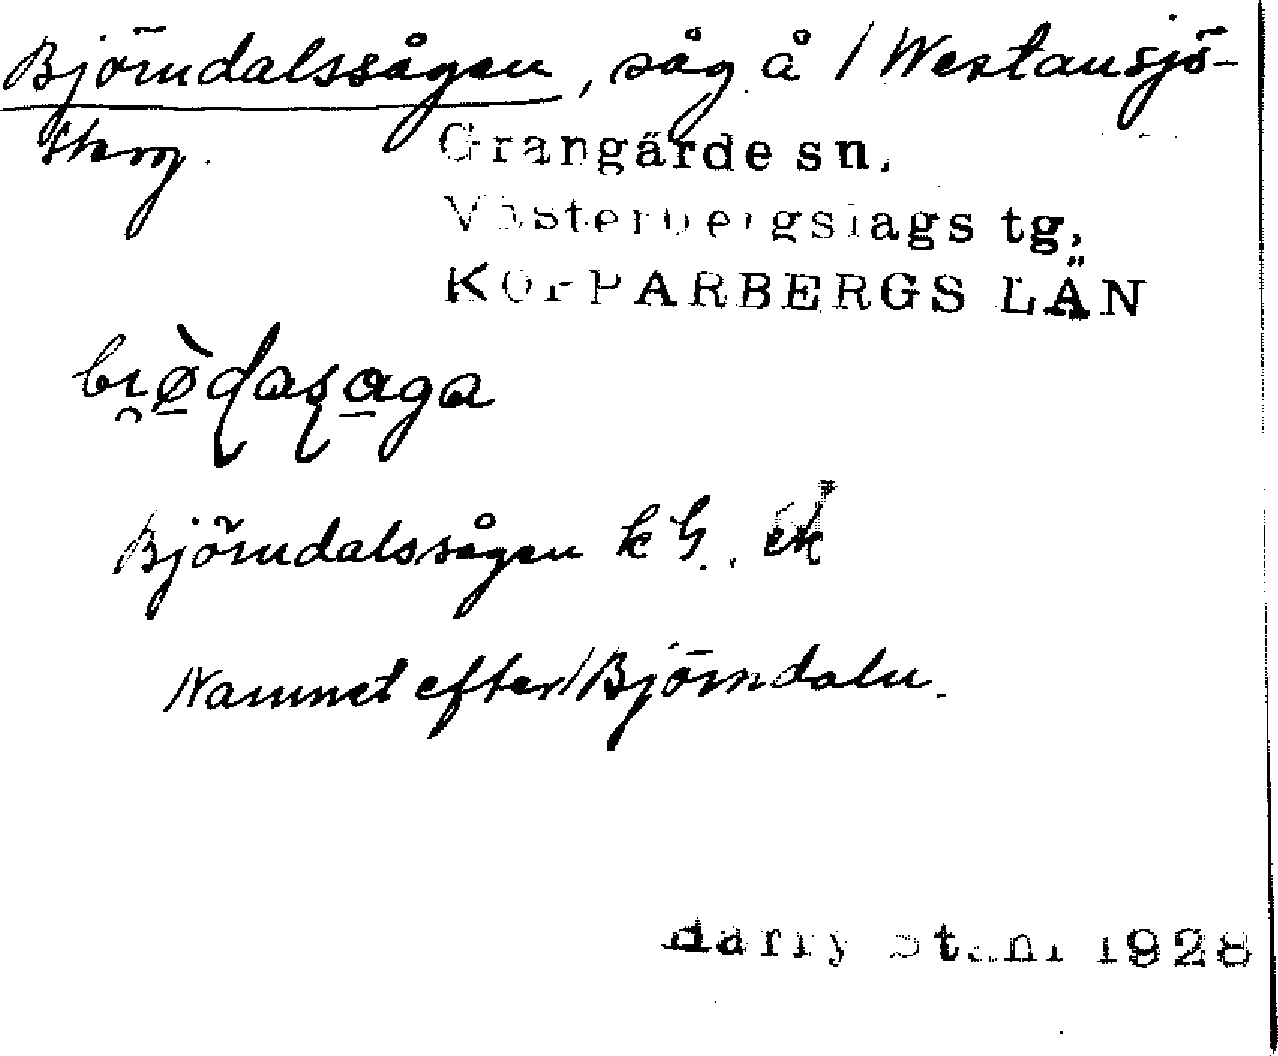 Björndalssågen, såg å / Westansjö-
skog.
Grangärde sn.
Västerbergslags tg,
KOPPARBERGS LÄN
Björndalssågen k G.. ek
Namnet efter / Björndaln.
Harry Ståhl 1928